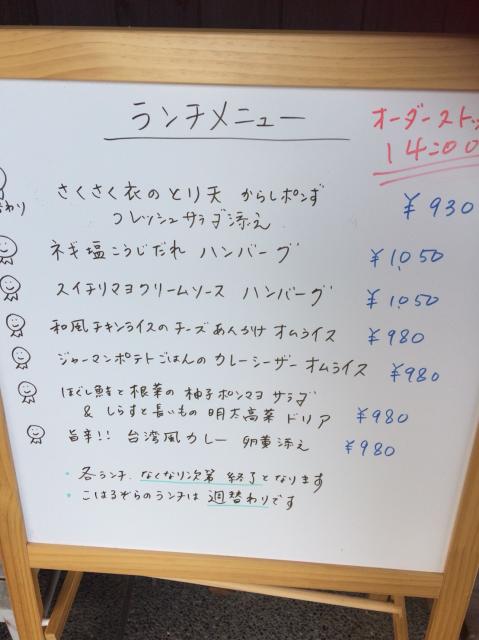 ランチメニュー
オーダーストッ
14:00
さくさく衣のとり天 からしポンず ¥930
フレッシュサラダ添え
ネギ塩こうじだれ ハンバーグ ¥1,050
スイチリマヨクリームソース ハンバーグ ¥1,050
和風チキンライスのチーズあんかけ オムライス ¥980
ジャーマンポテトごはんのカレーシーザー オムライス ¥980
ほぐし鮭と根菜の柚子ポンマヨ サラダ
& しらすと長いもの 明太高菜 ドリア ¥980
旨辛!! 台湾風カレー 卵黄添え ¥980
・各ランチ、なくなり次第 終了となります
・こはるぞらのランチは 週替わりです